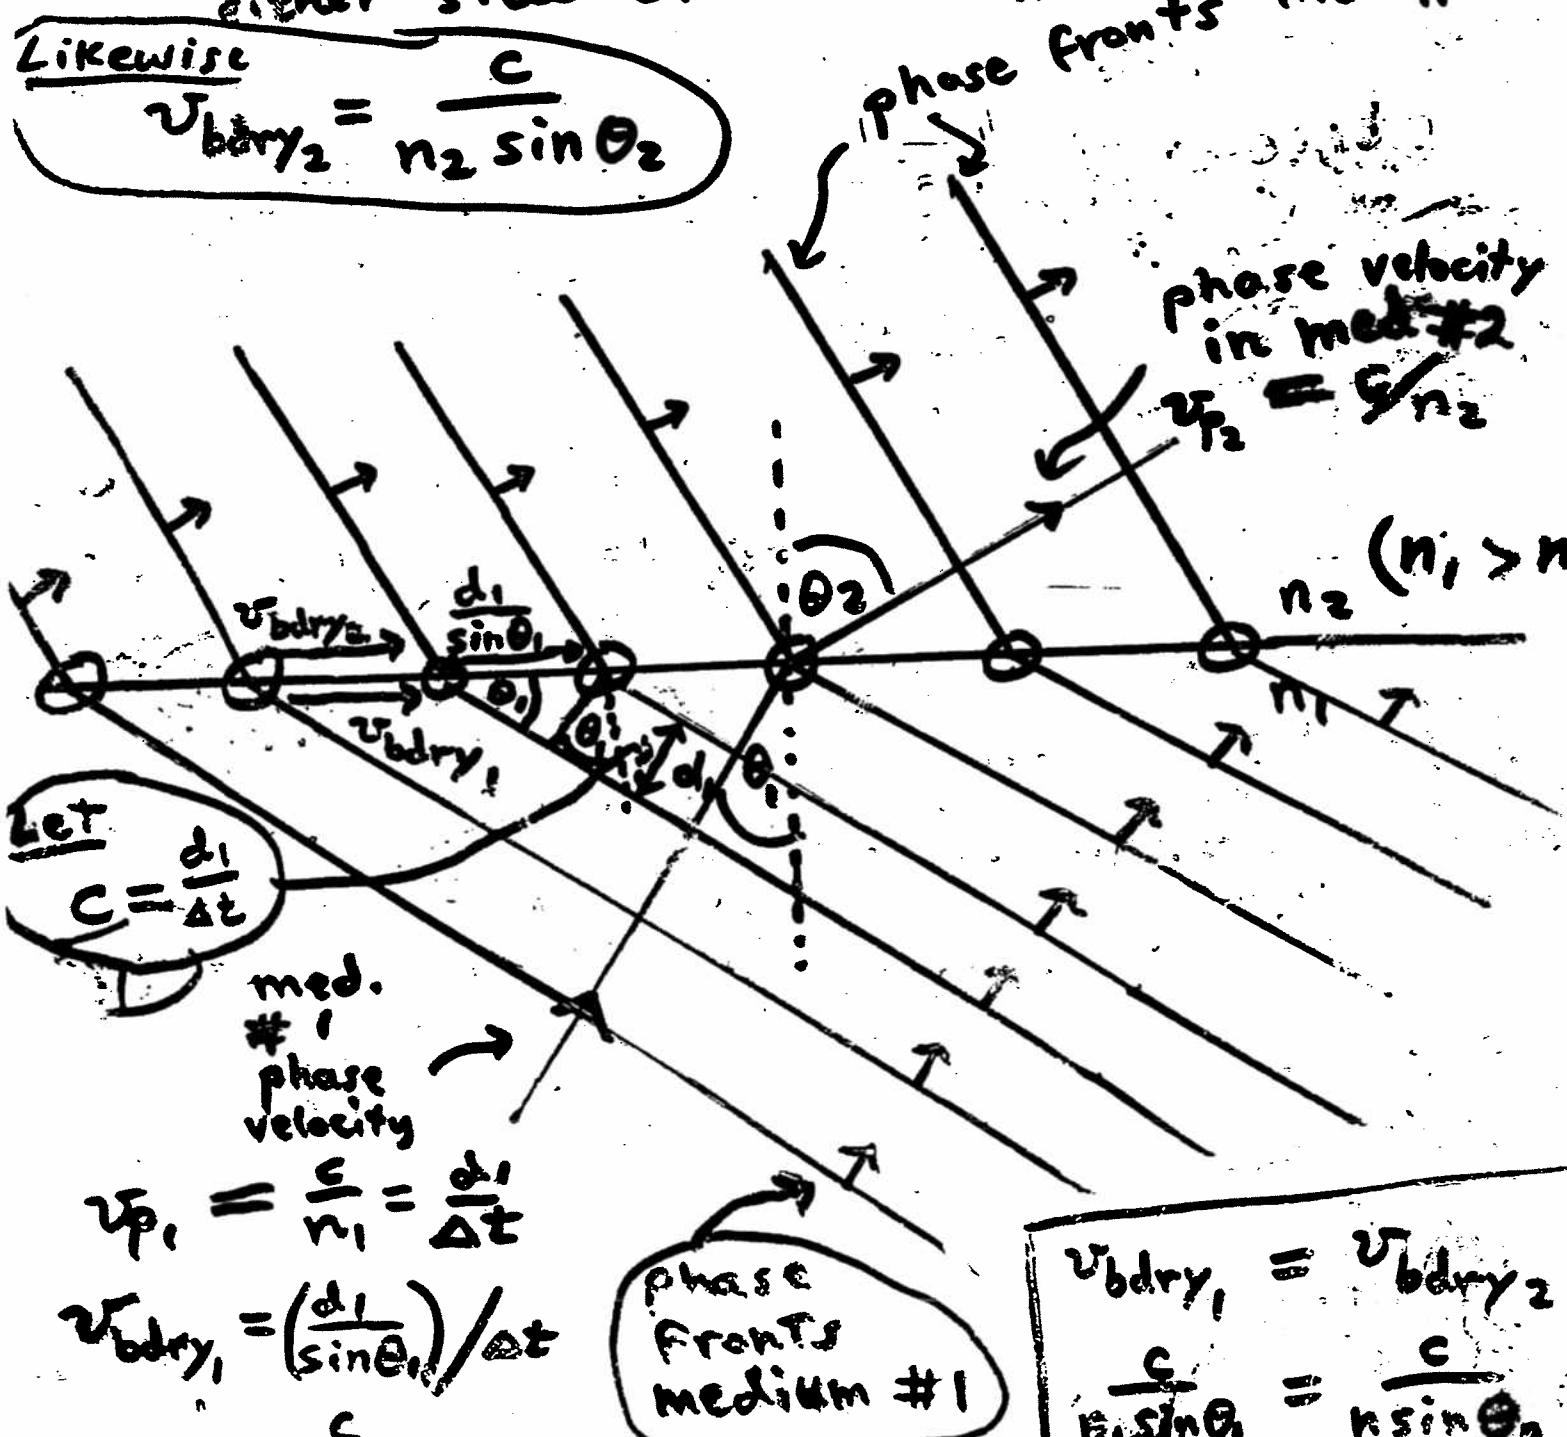 either
Likewise
v_bdry₂ = c / n₂ sin θ₂
phase fronts
phase velocity
in med #2
v_p₂ = c/n₂
(n₁ > n
n₂
n₁
θ₂
v_bdry₂
d₁ / sin θ₁
v_bdry₁
θ₁
θ₁
d₁
θ₁
Let
c = d₁ / Δt
med.
# 1
phase
velocity
v_p₁ = c / n₁ = d₁ / Δt
v_bdry₁ = (d₁ / sin θ₁) / Δt
c
phase
fronts
medium #1
v_bdry₁ = v_bdry₂
c / n₁ sin θ₁ = c / n sin θ₂